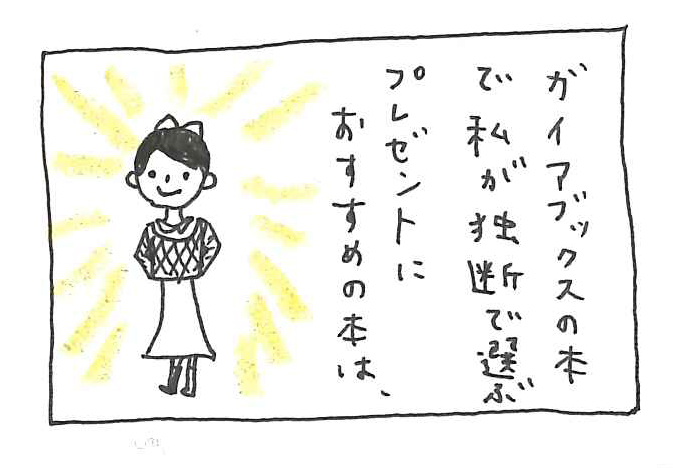 ガイアブックスの本
で私が独断で選ぶ
プレゼントに
おすすめの本は、